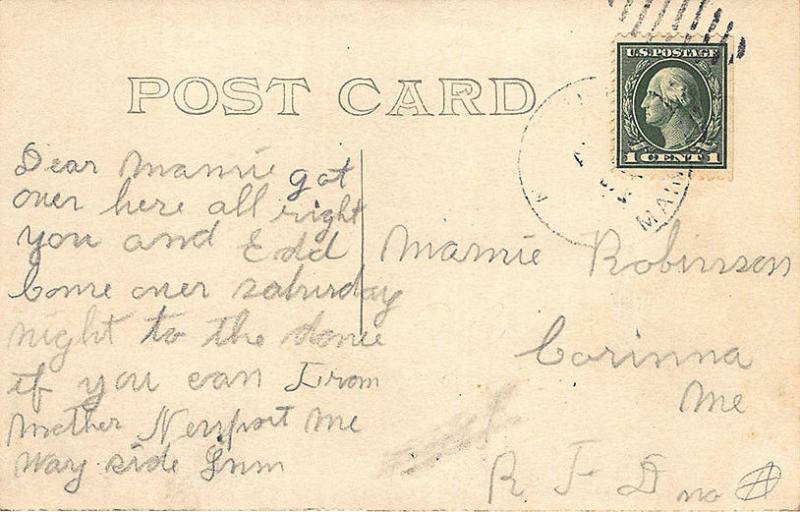 POST CARD
U.S. POSTAGE
1 CENT 1
MAIN
Dear Mamie got
over here all right
you and Edd
Come over saturday
night to the dance
if you can From
Mother Newport Me
Way side Inn
Mamie Robinson
Corinna
Me
R F D no